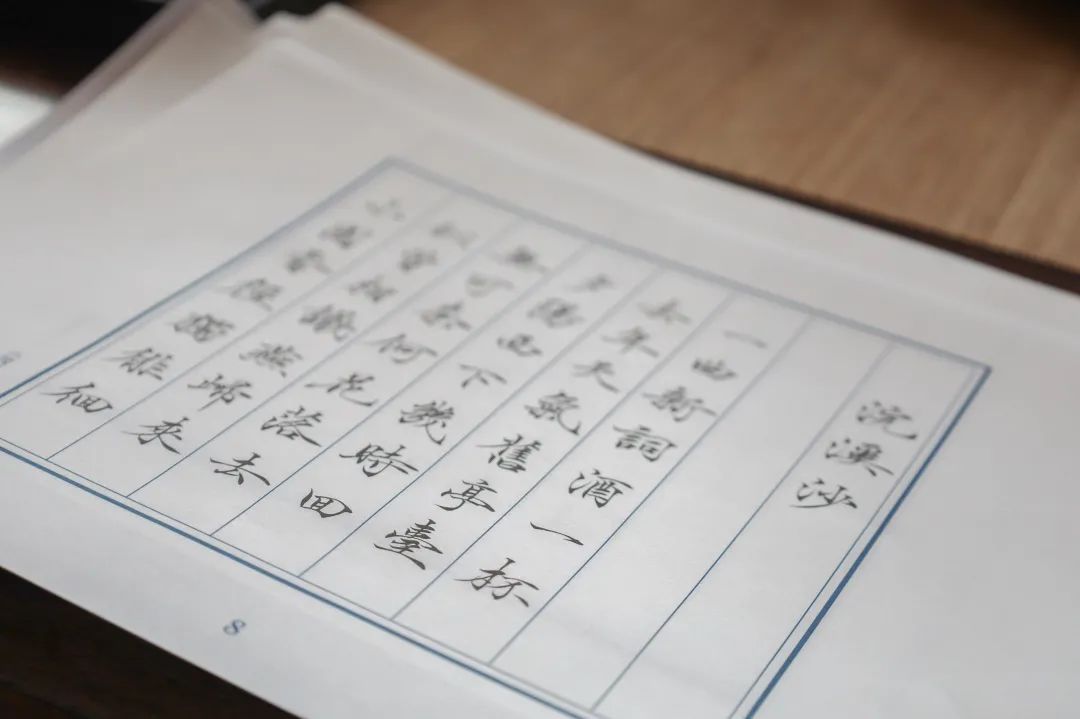 浣溪沙
一曲新詞酒一杯
去年天氣舊亭臺
夕陽西下幾時囬
無可奈何花落去
似曾相識燕歸來
小園香徑獨徘徊
8